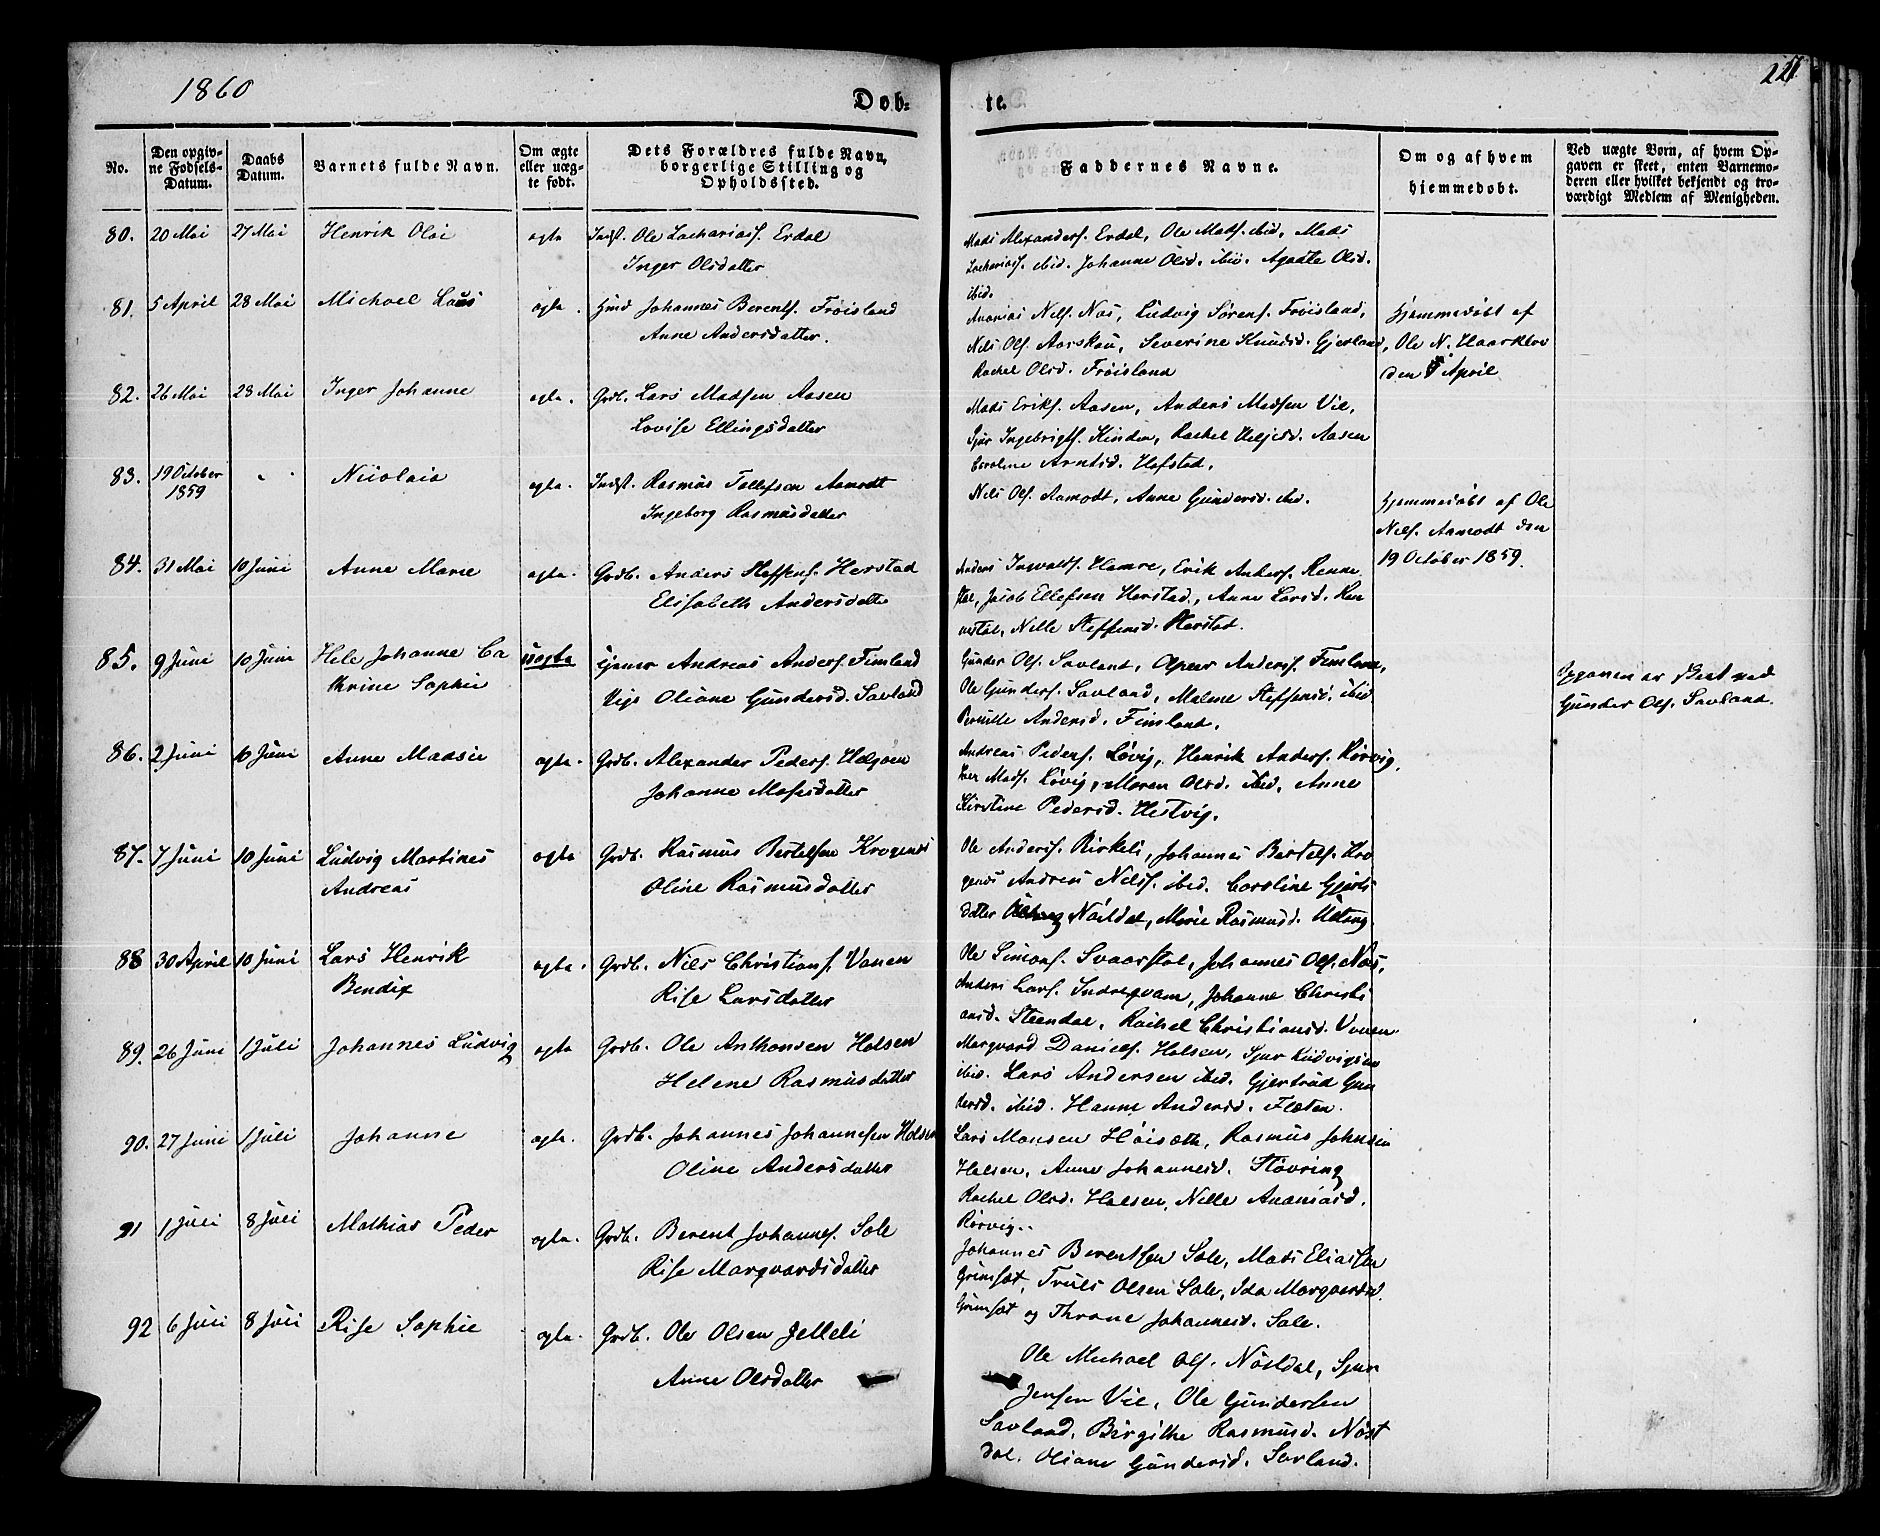 1860
Døb=
te.
221
No.
Den opgiv=
ne Fødsels=
Datum.
Daabs
Datum.
Barnets fulde Navn.
Om ægte
eller uæg=
te født.
Dets Forældres fulde Navn,
borgerlige Stilling og
Opholdssted.
Faddernes Navne.
Om og af hvem
hjemmedøbt.
Ved uægte Børn, af hvem Op=
gaven er skeet, enten Barnemo=
deren eller hvilket bekjendt og tro=
værdigt Medlem af Menigheden.
80. 20 Mai 27 Mai Henrik Olai ægte Indst. Ole Zachariass. Erdal
Inger Olsdatter
Mads Alexanders. Erdal, Ole Mads. ibid, Mads
Zachariass. ibid. Johanne Olsd. ibid. Agaate Olsd.
ibid.
81. 5 April 28 Mai Michael Laus ægte. Hmd Johannes Berents. Frøisland
Anne Andersdatter.
Ananias Nels. Nas, Ludvig Sørens. Frøisland,
Nils Ols. Aarskau, Severine Knudsd. Gjerland,
Rachel Olsd. Frøisland
Hjemmedøbt af
Ole N. Haarklau
den April
82. 26 Mai 28 Mai Inger Johanne ægte. Grdb. Lars Madsen Aasen
Lovise Ellingsdatter
Mads Eriks. Aasen, Anders Madsen Vie,
Sjur Ingebrigts. Kinden, Rachel Heljesd. Aasen
Caroline Arntsd. Hafstad.
83. 19 October
1859 Nicolaia ægte. Indst. Rasmus Tollefsen Aamodt
Ingeborg Rasmusdatter
Nils Ols. Aamodt, Anne Gundersd. ibid.
Hjemmedøbt af Ole
Nels. Aamodt den
19 October 1859.
84. 31 Mai 10 Juni Anne Marie ægte. Grdb. Anders Steffens. Herstad
Elisabeth Andersdatter
Anders Ingvalds. Hamre, Erik Anders. Renne
stal, Jacob Ellefsen Herstad, Anne Larsd. Ren
nestal, Nille Steffensd. Herstad.
85. 9 Juni 10 Juni Hele Johanne Ca
thrine Sophie
uægte Andreas Anders. Fimland
Pige Oliane Gundersd. Savland
Gunder Ols. Savland, Anders. Fimland,
Ole Gunders. Savland, Malene Steffensd. ibid
Pernille Andersd. Fimland.
Opgaven er skeet ved
Gunder Ols. Savland.
86. 2 Juni 10 Juni Anne Madsie ægte. Grdb. Alexander Peders. Helgøen
Johanne Mosesdatter
Andreas Peders. Løvig, Henrik Anders. Rørvig,
Iver Mads. Løvig, Maren Olsd. ibid, Anne
Kirstine Pedersd. Hestvig.
87. 7 Juni 10 Juni Ludvig Martines
Andreas
ægte Grdb. Rasmus Bertelsen Krogenes
Oline Rasmusdatter
Ole Anders. Birkeli, Johannes Bertels. Kro
genes Andreas Nels. ibid. Caroline Gjerts
datter Nøsdal, Marie Rasmusd.
88 30 April 10 Juni Lars Henrik
Bendix
ægte. Grdb. Nils Christians. Vonen
Rise Larsdatter
Ole Simons. Svaarstal, Johannes Ols. Nas,
Anders Lars. Indreqvam, Johanne Christi
ansd. Steendal, Rachel Christiansd. Vonen
89. 26 Juni 1 Juli Johannes Ludvig ægte Grdb. Ole Anthonsen Halsen
Helene Rasmusdatter
Marqvard Daniels. Halsen, Sjur Ludvigsen
ibid. Lars Andersen ibid. Gjertrud Gun
dersd. ibid. Hanne Andersd. Flæten.
90. 27 Juni 1 Juli Johanne ægte. Grdb. Johannes Johannesen Halsen
Oline Andersdatter
Lars Monsen Høisæth, Rasmus Johnsen
Halsen, Anne Johannesd. Støvring
Rachel Olsd. Halsen, Nille Ananiasd.
Rørvig.
91 1 Juli 8 Juli Mathias Peder ægte. Grdb. Berent Johannes. Sole
Rise Marqvardsdatter
Johannes Berentsen Sole, Mads Eliassen
Grimsæt, Truls Olsen Sole, Ida Marqvardsd.
Grimsæt og Throne Johannesd. Sole.
92 6 Juli 8 Juli Rise Sophie ægte. Grdb. Ole Olsen Jelleli
Anne Olsdatter
Ole Michael Ols. Nøsdal, Sjur
Jensen Vie, Ole Gundersen
Savland, Birgithe Rasmusd. Nøst
dal. Oliane Gundersd. Savland.